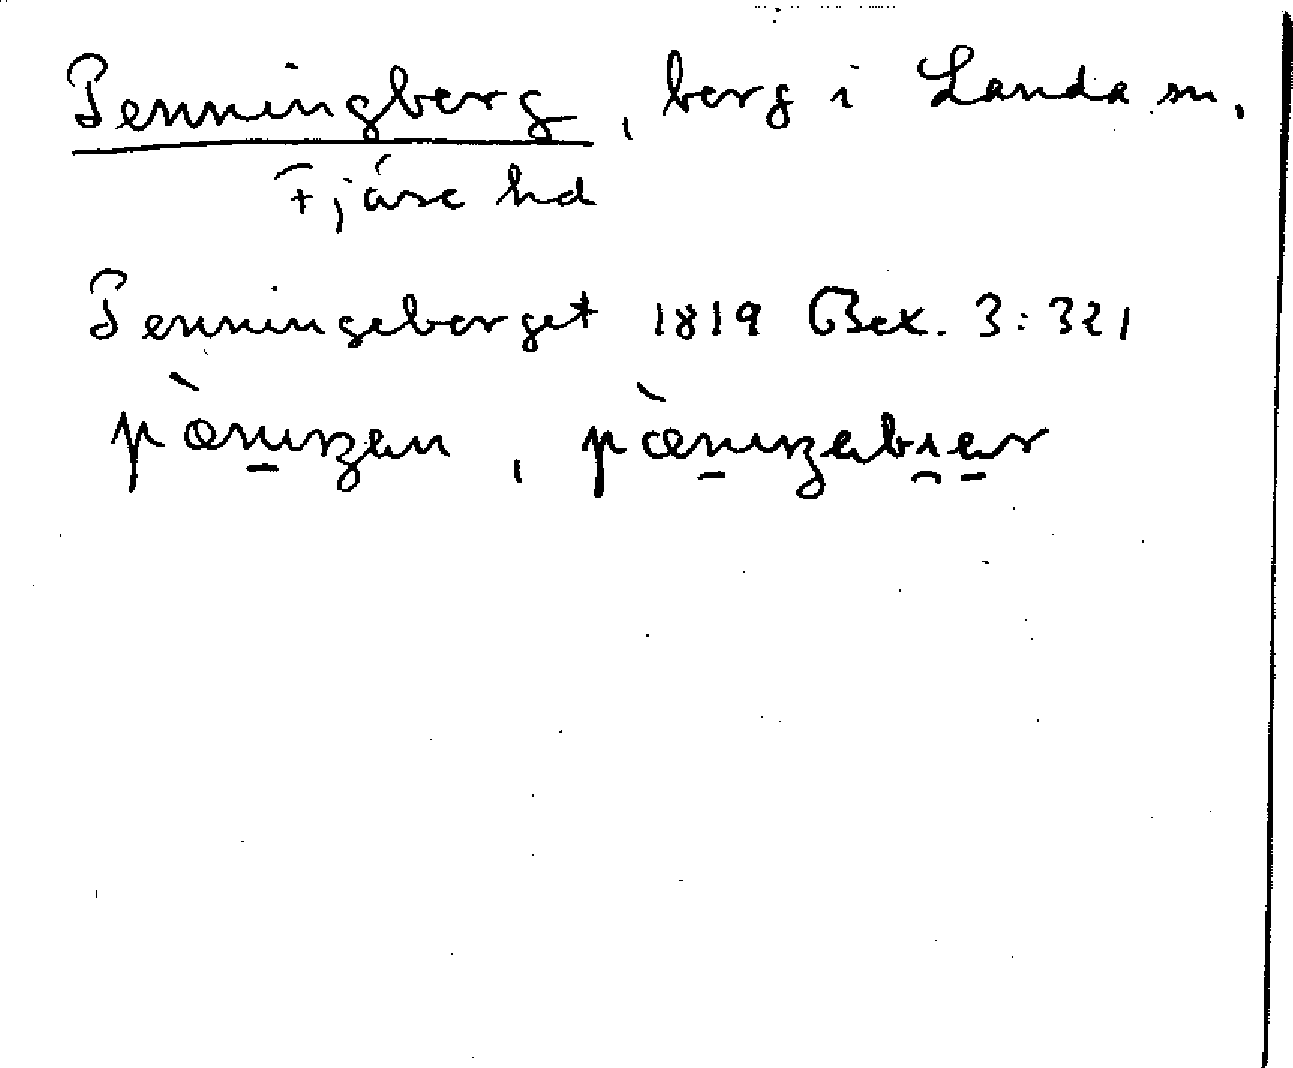 Penningberg, berg i Landa sn,
Fjäre hd
Penningeberget 1819 Bex. 3:321